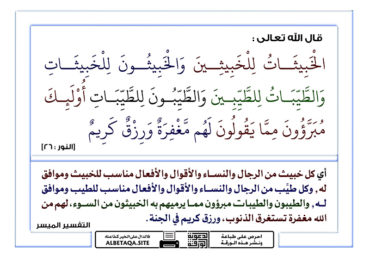 قال الله تعالى :
الْخَبِيثَاتُ لِلْخَبِيثِينَ وَالْخَبِيثُونَ لِلْخَبِيثَاتِ
وَالطَّيِّبَاتُ لِلطَّيِّبِينَ وَالطَّيِّبُونَ لِلطَّيِّبَاتِ أُوْلَٰئِكَ
مُبَرَّؤُونَ مِمَّا يَقُولُونَ لَهُم مَّغْفِرَةٌ وَرِزْقٌ كَرِيمٌ
[النور : ٢٦]
أي كل خبيث من الرجال والنساء والأقوال والأفعال مناسب للخبيث وموافق
له، وكل طيِّب من الرجال والنساء والأقوال والأفعال مناسب للطيب وموافق
له، والطيبون والطيبات مبرؤون مما يرميهم به الخبيثون من السوء، لهم من
الله مغفرة تستغرق الذنوب، ورزق كريم في الجنة.
التفسير الميسر
احرص على طباعة
ونشر هذه الورقة
فالدال على الخير كفاعله
ALBETAQA.SITE